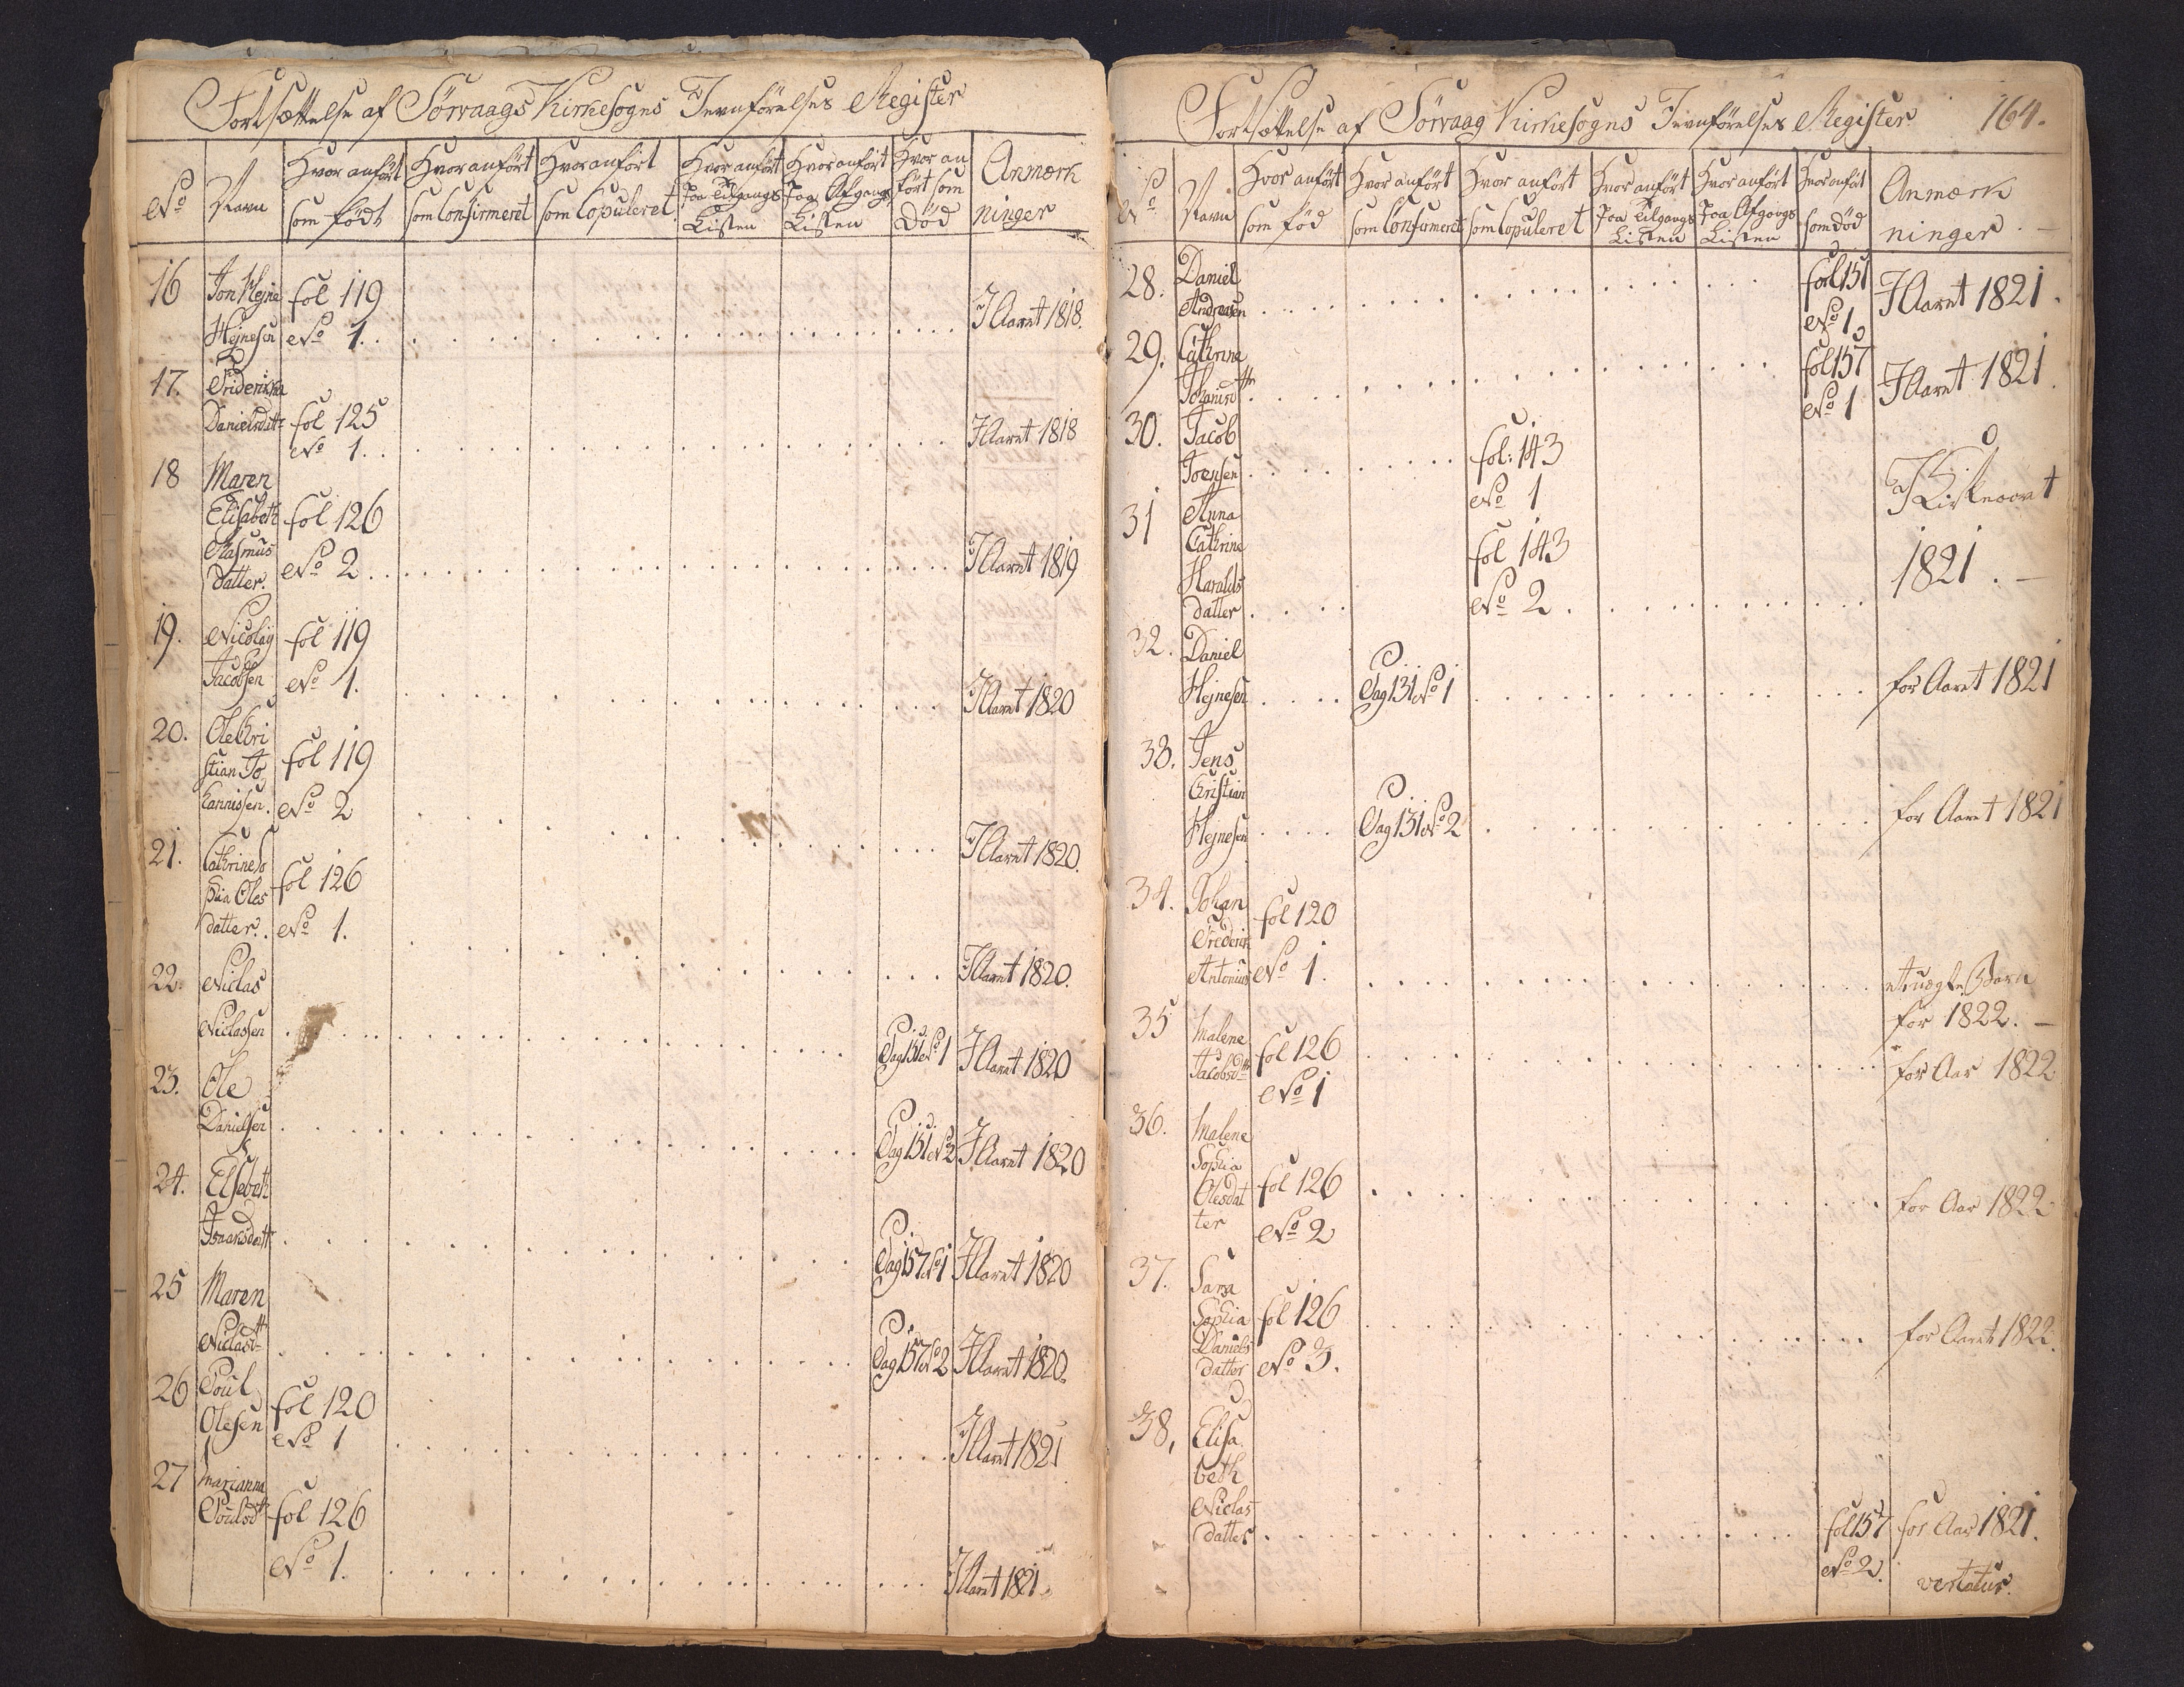 Fortsættelse af Sörvaags Kirkesogns Jevnförelses Register
No
Navn
Hvor anfört som Födt
Hvor anfört som Confirmeret
Hvor anfört som Copuleret
Hvor anfört Paa Tilgangs Listen
Hvor anfört Paa Afgangs Listen
Hvor anfört som Död
Anmærkninger
16 Jon Hejne fol 119
Hejnesen No 1. I Aaret 1818.
17. Friderikka
Danielsdattr fol 125
No 1. I Aaret 1818
18 Maren
Elisabeth fol 126
Rasmus
datter. No 2 I Aaret 1819
19. Nicolaÿ fol 119
Jacobsen No 1. I Aaret 1820
20. Ole Chri
stian Jo fol 119
hannissen. No 2 I Aaret 1820.
21. Cathrine So
phia Oles fol 126
datter. No 1. I Aaret 1820.
22. Niclas
Niclassen Pag 151 No 1 I Aaret 1820
23. Ole
Danielsen Pag 151 No 2 I Aaret 1820
24. Elsebeth
Isaaksdattr Pag 157 No 1 I Aaret 1820
25 Maren
Niclasdtr Pag 157 No 2 I Aaret 1820.
26 Poul fol 120
Olesen No 1 I Aaret 1821
27 Marianna
Poulsdtr fol 126
No 1. I Aaret 1821.
Fortsættelse af Sörvaag Kirkesogns Jevnförelses Register 164.
No
Navn
Hvor anfört som Föd
Hvor anfört som Confirmeret
Hvor anfört som Copuleret
Hvor anfört Paa Tilgangs Listen
Hvor anfört Paa Afgangs Listen
Hvor anfört som död
Anmærkninger.
28. Daniel fol 151
Andreasen No 1 I Aaret 1821.
29. Cathrine fol 157
Johanisdtr No 1 I Aaret 1821.
30. Jacob fol: 143
Joensen No 1 I Kirkeaaret
31 Anna
Cathrine fol 143 1821.
Haralds
datter No 2
32. Daniel
Hejnesen Pag 131 No 1 for Aaret 1821
33. Jens
Christian
Hejnesen Pag 131 No 2 for Aaret 1821
34. Johan fol 120
Frederik
Antonius No 1. Børn
for 1822.
35 Malene fol 126
Jacobsdtr No 1 for Aar 1822
36. Malene
Sophia
Olesdat fol 126
ter No 2 for Aar 1822
37. Sara
Sophia fol 126
Daniels
datter No 3. for Aaret 1822.
38, Elisa
beth
Niclas
datter fol 157 for Aar 1821.
No 2. vertatur.